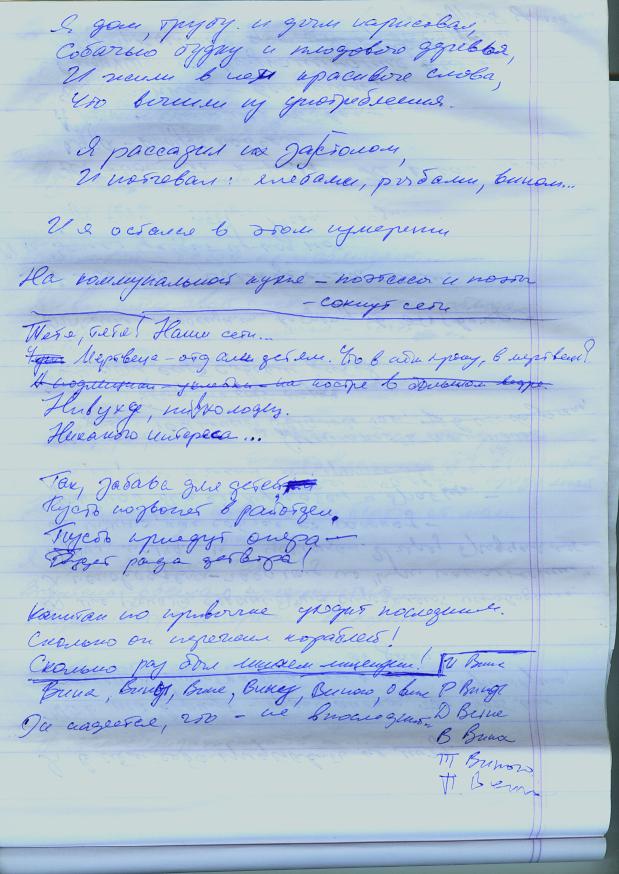 Я дом, трубу и дым нарисовал,
Собачью будку и плодового деревья,
И жили в нем красивые слова,
Что вышли из употребления.
Я рассадил их за столом,
И потчевал: хлебами, рыбами, вином...
И я остался в этом измерении
На коммунальной кухне – поэтессы и поэты
– сохнут сети
Тятя, тятя! Наши сети...
Мертвеца – отдали детям. Что в мертвом?
на костре в большом ведре.
Ни в ухе, ни в холодец.
Никакого интереса...
Так, забава для детей
Пусть позвонят в райотдел.
Пусть приедут опера –
Будет рада детвора!
Капитан по привычке уходит последним.
Сколько он перегнал кораблей!
Сколько раз был лишаем лицензии!
И Вина
Вина, Вину, Вине, Вину, Виною, о вине
Р Вины
Он надеется, что – не в последний.
Д Вине
В Вина
Т Виною
П Вине